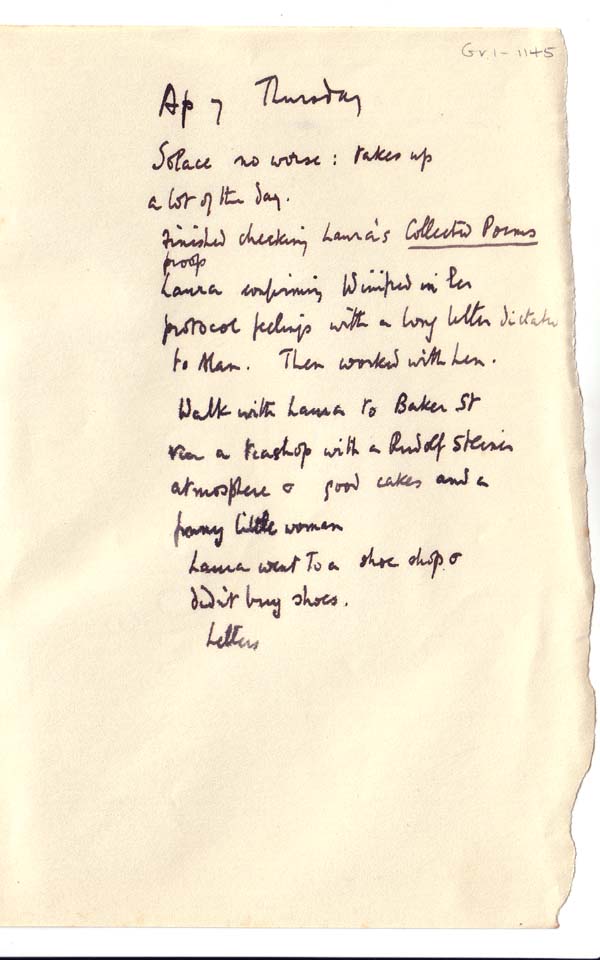 Gr. 1 - 1145
Ap 7 Thursday
Solace no worse: takes up
a lot of the day.
Finished checking Laura's Collected Poems
proof
Laura confirming Winifred in her
protocol feelings with a long letter dictated
to Alan. Then worked with Len.
Walk with Laura to Baker St
via a teashop with a Rudolf Steiner
atmosphere & good cakes and a
funny little woman
Laura went to a shoe shop &
didn't buy shoes.
Letters